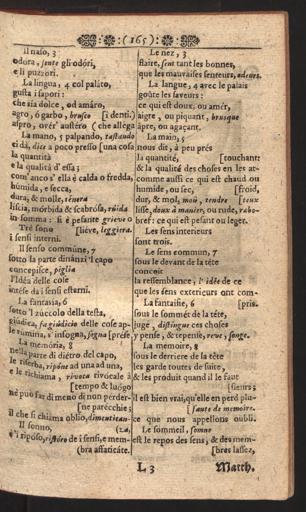 (165)
Il naso, 3
odora, sente gli odóri,
e li puzzori.
La lingua, 4 col paláto,
gusta i sapori:
che sia dolce, od amáro,
agro, ó garbo, brusco [i denti.)
aspro, overʼ austéro (che allega
La mano, 5 palpando, tastando
ti dá, dice a poco presso [una cosa
la quantità
e la qualità dʼ essa;
comʼ anco sʼ ella è calda o fredda,
húmida, e secca,
dura, & molle, ténera
liscia, mórbida & scabrosa, rúida
in somma: si è pesánte grieve o
Tré sono [liéve, leggiera.
i sensi interni.
Il senso commune, 7
sotto la parte dinánzi lʼcapo
concepisce, piglia
lʼIdéa delle cose
intése da i sensi esterni.
La fantasia, 6
sotto ʼl zúccolo della testa,
giúdica, fa giúdicio delle cose ap-
le rúmina, sʼ insogna, sogna [prése,
La memória, 8
nella parte di diétro del capo,
le riserba, ripóne ad una ad una,
e le richiama, rivoca rivocale à
[tempo & luógo
né può far di meno di non perder-
[ne parécchie;
il che si chiama oblio, dimentican-
Il sonno, (za,
è ʼl ripóso, ristóro de i sensi, e mem-
(bra affaticáte.
Le nez, 3
flaire, sent tant les bonnes,
que les mauvaises senteurs, odeurs.
La langue, 4 avec le palais
goûte les saveurs:
ce qui est doux, ou amér,
aigre, ou piquant, brusque
âpre, ou agaçant.
La main, 5
nous dit, à peu prés
la quantité, [touchant:
& la qualité des choses en les at-
comme aussi ce qui est chaud ou
humide, ou sec, [froid,
dur, & mol, moü, tendre [teux
lisse, doux à maniér, ou rude, rabo-
bref: ce qui est pesant ou leget.
Les sens interieurs
sont trois.
Le sens commun, 7
sous le devant de la tête
concoit
la resemblance, lʼ idée de ce
que les sens exterieurs ont com-
La fantaisie, 6 [pris.
sous le sommét de la tête,
juge, distingue ces choses
y pense, & repense, reve, songe.
La memoire, 8
sous le derriere de la tête
les garde toutes de suite,
& les produit quand il le faut
[sieurs;
il est bien vrai, quʼelle en perd plu-
[faute de memoire.
ce que nous appellons oubli.
Le sommeil, somne
est le repos des sens, & des mem-
[bres lassez,
L 3 Match.